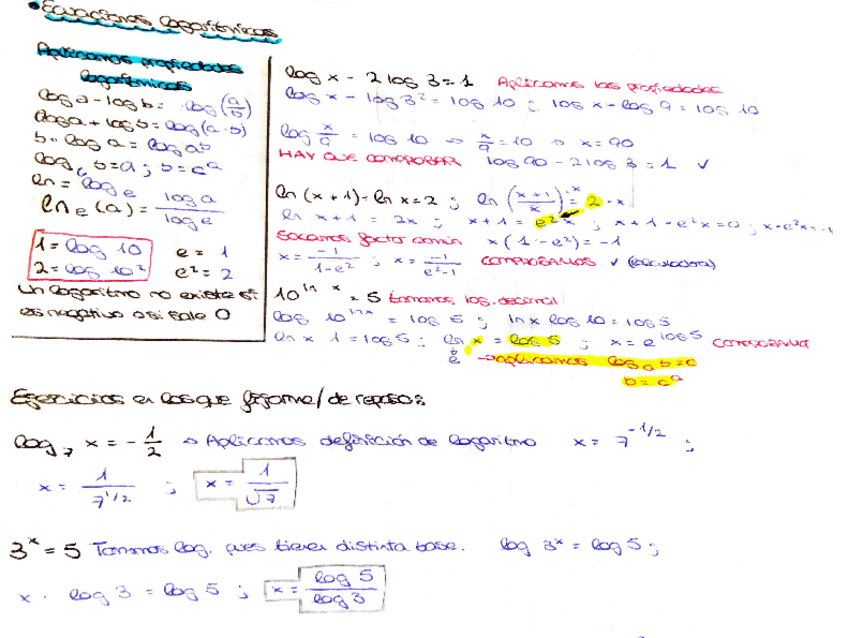 • Ecuaciones logarítmicas
Aplicamos propiedades
logarítmicas
log a - log b = log (a/b)
log a + log b = log (a · b)
b · log a = log a^b
log_c b = a ; b = c^a
ln = log e
ln_e (a) = log a / log e
1 = log 10   e = 1
2 = log 10²   e² = 2
Un logaritmo no existe si
es negativo o si sale 0
log x - 2 log 3 = 1   Aplicamos las propiedades
log x - log 3² = log 10 ; log x - log 9 = log 10
log x/9 = log 10 ⇒ x/9 = 10 ⇒ x = 90
HAY QUE COMPROBAR   log 90 - 2 log 3 = 1 ✓
ln (x + 1) - ln x = 2 ; ln (x+1/x)·x = 2·x
ln x + 1 = 2x ; x + 1 = e²x ; x + 1 - e²x = 0 ; x - e²x = -1
Sacamos factor común   x (1 - e²) = -1
x = -1/1-e² ; x = -1/e²-1   COMPROBAMOS ✓ (calculadora)
10^ln x = 5 tomamos log. decimal
log 10^ln x = log 5 ; ln x log 10 = log 5
ln x 1 = log 5 ; ln x = log 5 ; x = e^log 5   COMPROBAR
e → aplicamos log_a b = c
b = c^a
Ejercicios en los que fijarme/de repaso:
log_7 x = -1/2 ⇒ Aplicamos definición de logaritmo   x = 7^-1/2 ;
x = 1/7^1/2 ; x = 1/√7
3^x = 5 Tomamos log. pues tienen distinta base.   log 3^x = log 5 ;
x · log 3 = log 5 ; x = log 5/log 3